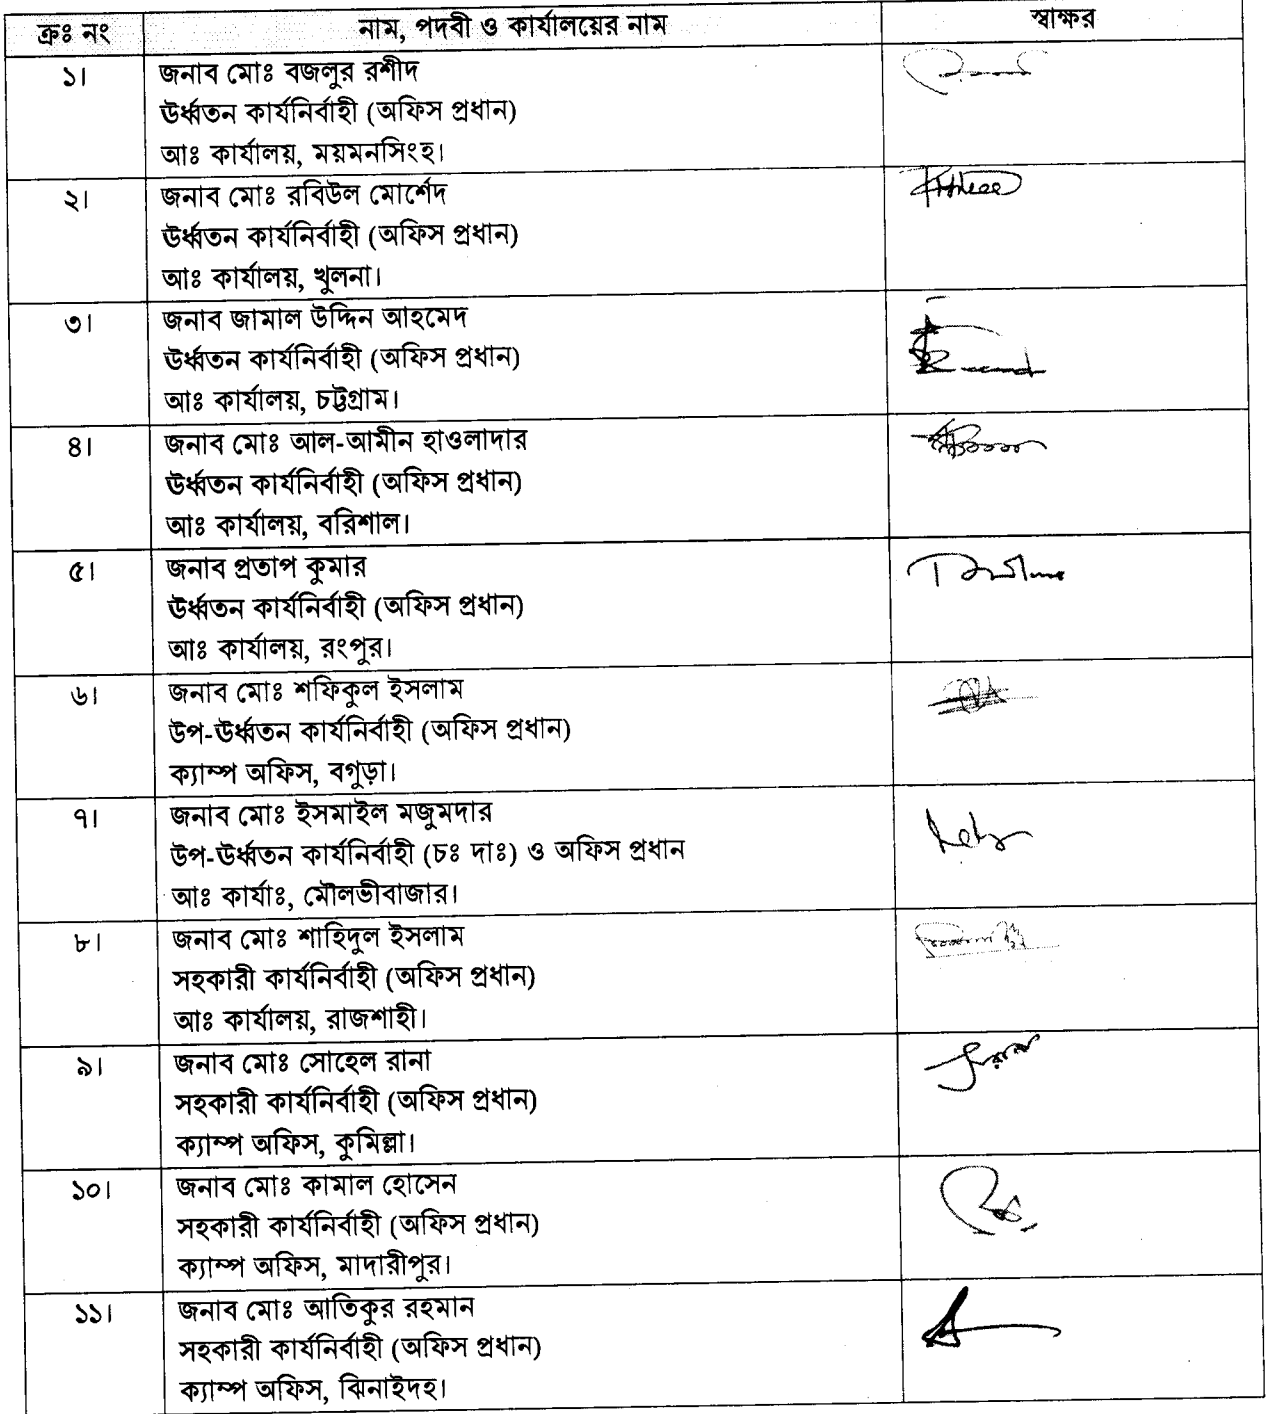 ক্রঃ নং নাম, পদবী ও কার্যালয়ের নাম স্বাক্ষর
১। জনাব মোঃ বজলুর রশীদ
ঊর্ধ্বতন কার্যনির্বাহী (অফিস প্রধান)
আঃ কার্যালয়, ময়মনসিংহ।
২। জনাব মোঃ রবিউল মোর্শেদ
ঊর্ধ্বতন কার্যনির্বাহী (অফিস প্রধান)
আঃ কার্যালয়, খুলনা।
৩। জনাব জামাল উদ্দিন আহমেদ
ঊর্ধ্বতন কার্যনির্বাহী (অফিস প্রধান)
আঃ কার্যালয়, চট্টগ্রাম।
৪। জনাব মোঃ আল-আমীন হাওলাদার
ঊর্ধ্বতন কার্যনির্বাহী (অফিস প্রধান)
আঃ কার্যালয়, বরিশাল।
৫। জনাব প্রতাপ কুমার
ঊর্ধ্বতন কার্যনির্বাহী (অফিস প্রধান)
আঃ কার্যালয়, রংপুর।
৬। জনাব মোঃ শফিকুল ইসলাম
উপ-ঊর্ধ্বতন কার্যনির্বাহী (অফিস প্রধান)
ক্যাম্প অফিস, বগুড়া।
৭। জনাব মোঃ ইসমাইল মজুমদার
উপ-ঊর্ধ্বতন কার্যনির্বাহী (চঃ দাঃ) ও অফিস প্রধান
আঃ কার্যাঃ, মৌলভীবাজার।
৮। জনাব মোঃ শাহিদুল ইসলাম
সহকারী কার্যনির্বাহী (অফিস প্রধান)
আঃ কার্যালয়, রাজশাহী।
৯। জনাব মোঃ সোহেল রানা
সহকারী কার্যনির্বাহী (অফিস প্রধান)
ক্যাম্প অফিস, কুমিল্লা।
১০। জনাব মোঃ কামাল হোসেন
সহকারী কার্যনির্বাহী (অফিস প্রধান)
ক্যাম্প অফিস, মাদারীপুর।
১১। জনাব মোঃ আতিকুর রহমান
সহকারী কার্যনির্বাহী (অফিস প্রধান)
ক্যাম্প অফিস, ঝিনাইদহ।